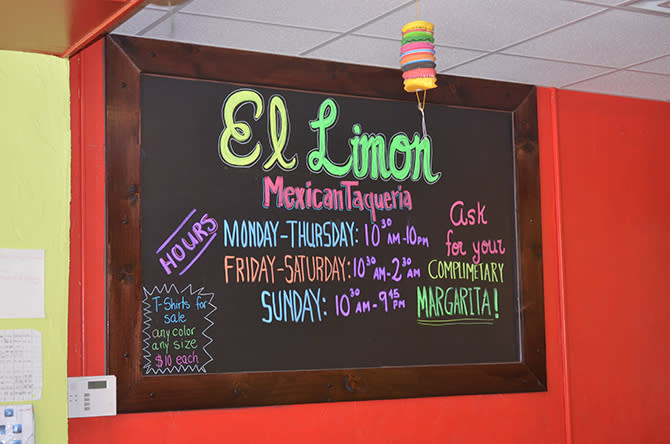 El Limon
MexicanTaqueria
HOURS
MONDAY-THURSDAY: 10 30 AM-10 PM
FRIDAY-SATURDAY: 10 30 AM-2 30 AM
SUNDAY: 10 30 AM-9 45 PM
Ask
for your
COMPLIMETARY
MARGARITA!
T-Shirts for
sale
any color
any size
$10 each